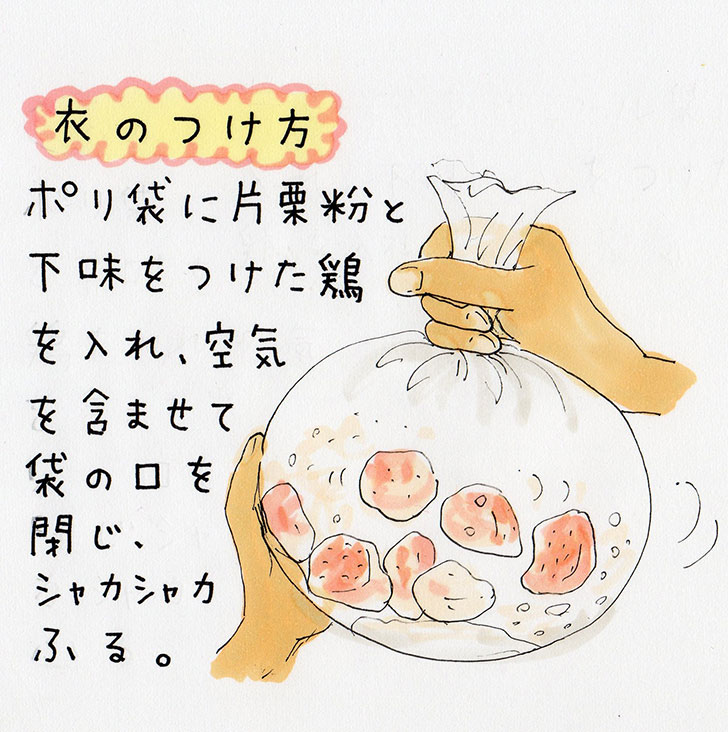 衣のつけ方
ポリ袋に片栗粉と
下味をつけた鶏
を入れ、空気
を含ませて
袋の口を
閉じ、
シャカシャカ
ふる。